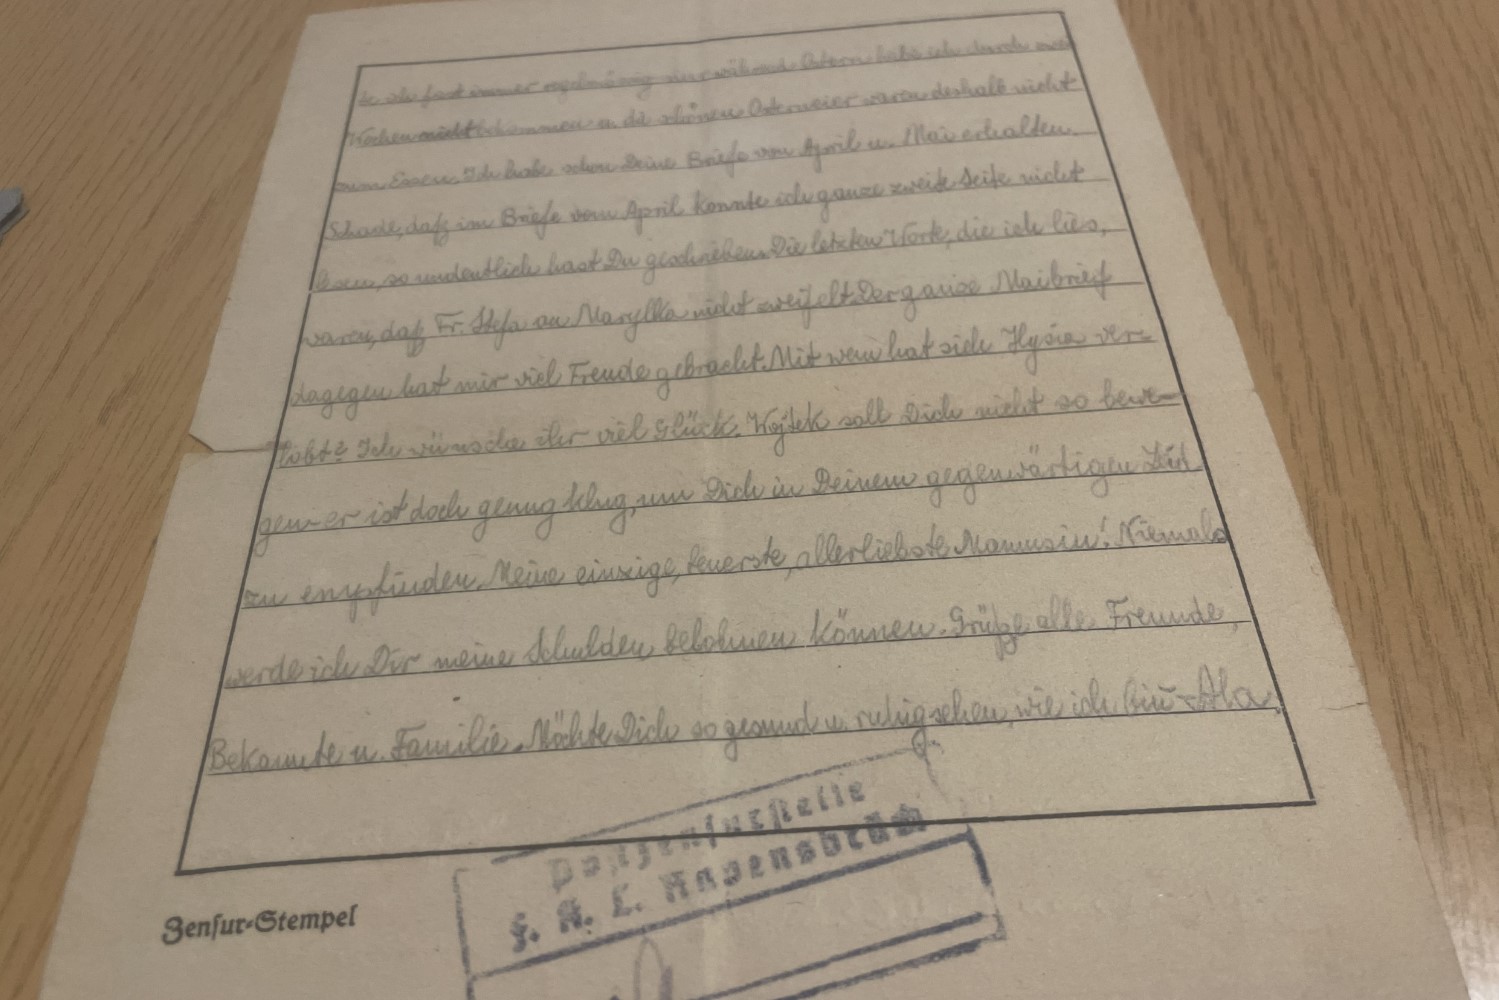 te ich fast immer regelmäszig nur während Ostern habe ich durch zwei
Wochen nicht bekommen u. die schönen Ostereier waren deshalb nicht
zum Essen. Ich habe schon Deine Briefe vom April u. Mai erhalten.
Schade, daß im Briefe vom April konnte ich ganze zweite Seite nicht
lesen, so undeutlich hast Du geschrieben. Die letzten Worte, die ich lies,
waren, daß Fr. Stefa an Marylka nicht zweifelt. Der ganze Maibrief
dagegen hat mir viel Freude gebracht. Mit wem hat sich Hysia ver-
lobt? Ich wünsche ihr viel Glück. Wojtek soll Dich nicht so bewe-
gen - er ist doch genug klug, um Dich in Deinem gegenwärtigen Leid
zu empfinden. Meine einzige, teuerste, allerliebste Mamusiu! Niemals
werde ich Dir meine Schulden belohnen können. Grüße alle Freunde,
Bekannte u. Familie. Möchte Dich so gesund u. ruhig sehen, wie ich bin - Ala.
Postzensurstelle
F. K. L. Ravensbrück
Zensur-Stempel